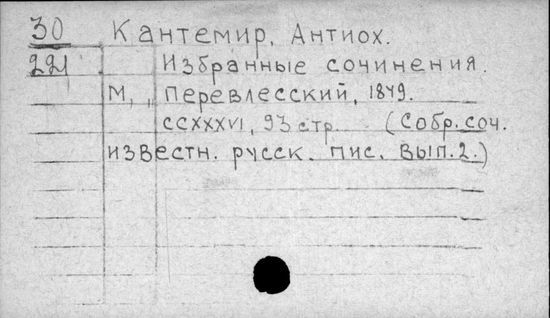 30 Кантемир, Антиох.
221 Избранные сочинения.
М., Перевлесский, 1849.
CCXXXVI, 93 стр. (Собр. соч.
известн. русск. пис. Вып. 2.)